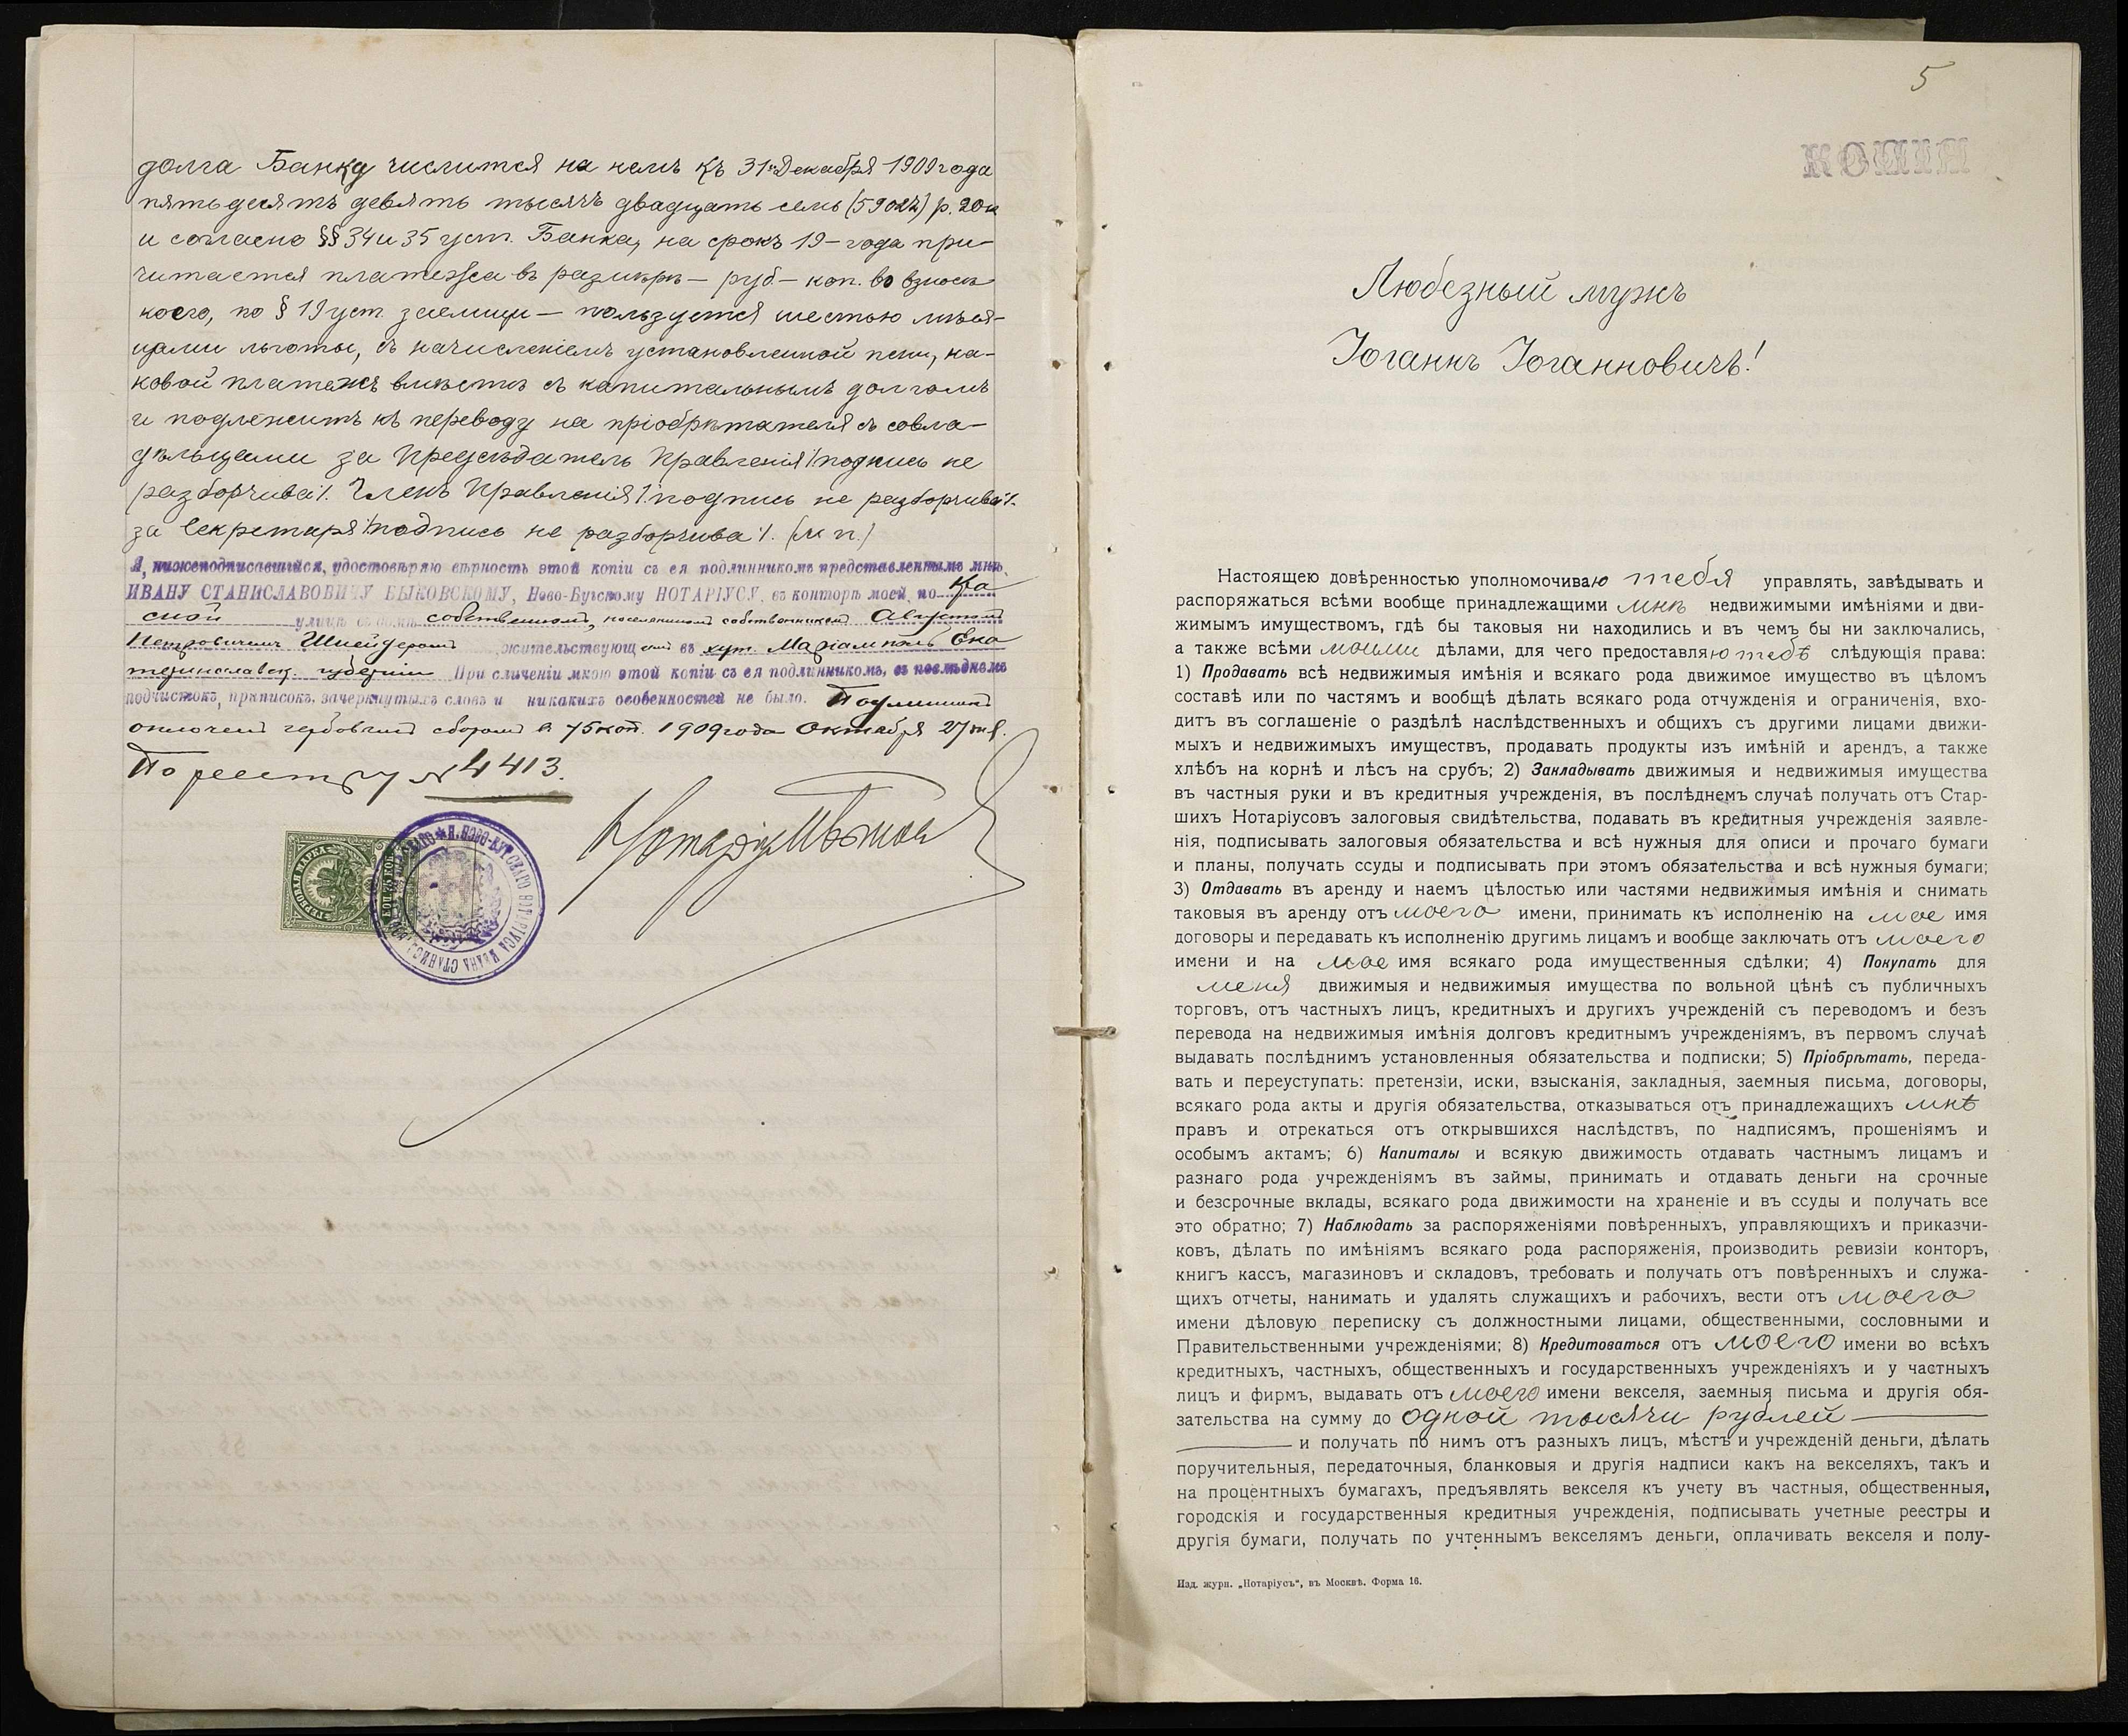 долга Банку числится на немъ къ 31ᵐ Декабря 1909 года
пятьдесятъ девять тысячъ двадцать семь (59027) р. 20 к
и согласно §§ 34 и 35 уст. Банка, на срокъ 19– года при-
читается платежа въ размѣрѣ – руб. – коп. во взносѣ
коего, по § 19 уст. заемщи – пользуется шестью мѣся-
цами льготы, съ начисленіемъ установленной пени, ка-
ковой платежъ вмѣстѣ съ капитальнымъ долгомъ
и подлежитъ къ переводу на пріобрѣтателя съ совла-
дѣльцами за Предсѣдатель Правленія /:подпись не
разборчива:/. Членъ Правленія /:подпись не разборчива:/.
за Секретаря /:подпись не разборчива:/. (м п.)
Я, нижеподписавшійся, удостовѣряю вѣрность этой копіи съ ея подлинникомъ представленнымъ мнѣ,
ИВАНУ СТАНИСЛАВОВИЧУ БЫКОВСКОМУ, Ново-Бугскому НОТАРІУСУ, въ конторѣ моей, по
сной улицѣ въ домѣ собственномъ, поселяниномъ собственникомъ Августомъ
Петровичемъ Шнейдеромъ жительствующимъ въ хут. Маріамполь Ека
теринославск. губерніи При сличеніи мною этой копіи съ ея подлинникомъ, въ послѣднемъ
подчистокъ, приписокъ, зачеркнутыхъ словъ и никакихъ особенностей не было. Подлинникъ
оплоченъ гербовымъ сборомъ въ 75 коп. 1909 года Октября 27 дня.
По реестру № 4413.
Нотаріусъ
ГЕРБОВАЯ МАРКА
5
КОПІЯ
Любезный мужъ
Іоганнъ Іоганновичъ!
Настоящею довѣренностью уполномочиваю тебя управлять, завѣдывать и
распоряжаться всѣми вообще принадлежащими мнѣ недвижимыми имѣніями и дви-
жимымъ имуществомъ, гдѣ бы таковыя ни находились и въ чемъ бы ни заключались,
а также всѣми моими дѣлами, для чего предоставляю тебѣ слѣдующія права:
1) Продавать всѣ недвижимыя имѣнія и всякаго рода движимое имущество въ цѣломъ
составѣ или по частямъ и вообщѣ дѣлать всякаго рода отчужденія и ограниченія, вхо-
дить въ соглашеніе о раздѣлѣ наслѣдственныхъ и общихъ съ другими лицами движи-
мыхъ и недвижимыхъ имуществъ, продавать продукты изъ имѣній и арендъ, а также
хлѣбъ на корнѣ и лѣсъ на срубъ; 2) Закладывать движимыя и недвижимыя имущества
въ частныя руки и въ кредитныя учрежденія, въ послѣднемъ случаѣ получать отъ Стар-
шихъ Нотаріусовъ залоговыя свидѣтельства, подавать въ кредитныя учрежденія заявле-
нія, подписывать залоговыя обязательства и всѣ нужныя для описи и прочаго бумаги
и планы, получать ссуды и подписывать при этомъ обязательства и всѣ нужныя бумаги;
3) Отдавать въ аренду и наемъ цѣлостью или частями недвижимыя имѣнія и снимать
таковыя въ аренду отъ моего имени, принимать къ исполненію на мое имя
договоры и передавать къ исполненію другимь лицамъ и вообще заключать отъ моего
имени и на мое имя всякаго рода имущественныя сдѣлки; 4) Покупать для
меня движимыя и недвижимыя имущества по вольной цѣнѣ съ публичныхъ
торговъ, отъ частныхъ лицъ, кредитныхъ и другихъ учрежденій съ переводомъ и безъ
перевода на недвижимыя имѣнія долговъ кредитнымъ учрежденіямъ, въ первомъ случаѣ
выдавать послѣднимъ установленныя обязательства и подписки; 5) Пріобрѣтать, переда-
вать и переуступать: претензіи, иски, взысканія, закладныя, заемныя письма, договоры,
всякаго рода акты и другія обязательства, отказываться отъ принадлежащихъ мнѣ
правъ и отрекаться отъ открывшихся наслѣдствъ, по надписямъ, прошеніямъ и
особымъ актамъ; 6) Капиталы и всякую движимость отдавать частнымъ лицамъ и
разнаго рода учрежденіямъ въ займы, принимать и отдавать деньги на срочные
и безсрочные вклады, всякаго рода движимости на храненіе и въ ссуды и получать все
это обратно; 7) Наблюдать за распоряженіями повѣренныхъ, управляющихъ и приказчи-
ковъ, дѣлать по имѣніямъ всякаго рода распоряженія, производить ревизіи конторъ,
книгъ кассъ, магазиновъ и складовъ, требовать и получать отъ повѣренныхъ и служа-
щихъ отчеты, нанимать и удалять служащихъ и рабочихъ, вести отъ моего
имени дѣловую переписку съ должностными лицами, общественными, сословными и
Правительственными учрежденіями; 8) Кредитоваться отъ моего имени во всѣхъ
кредитныхъ, частныхъ, общественныхъ и государственныхъ учрежденіяхъ и у частныхъ
лицъ и фирмъ, выдавать отъ моего имени векселя, заемныя письма и другія обя-
зательства на сумму до одной тысячи рублей
и получать по нимъ отъ разныхъ лицъ, мѣстъ и учрежденій деньги, дѣлать
поручительныя, передаточныя, бланковыя и другія надписи какъ на векселяхъ, такъ и
на процентныхъ бумагахъ, предъявлять векселя къ учету въ частныя, общественныя,
городскія и государственныя кредитныя учрежденія, подписывать учетные реестры и
другія бумаги, получать по учтеннымъ векселямъ деньги, оплачивать векселя и полу-
Изд. журн. „Нотаріусъ“, въ Москвѣ. Форма 16.